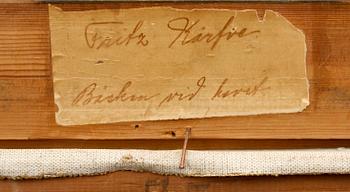 Fritz Kärfve
Bäcken vid havet